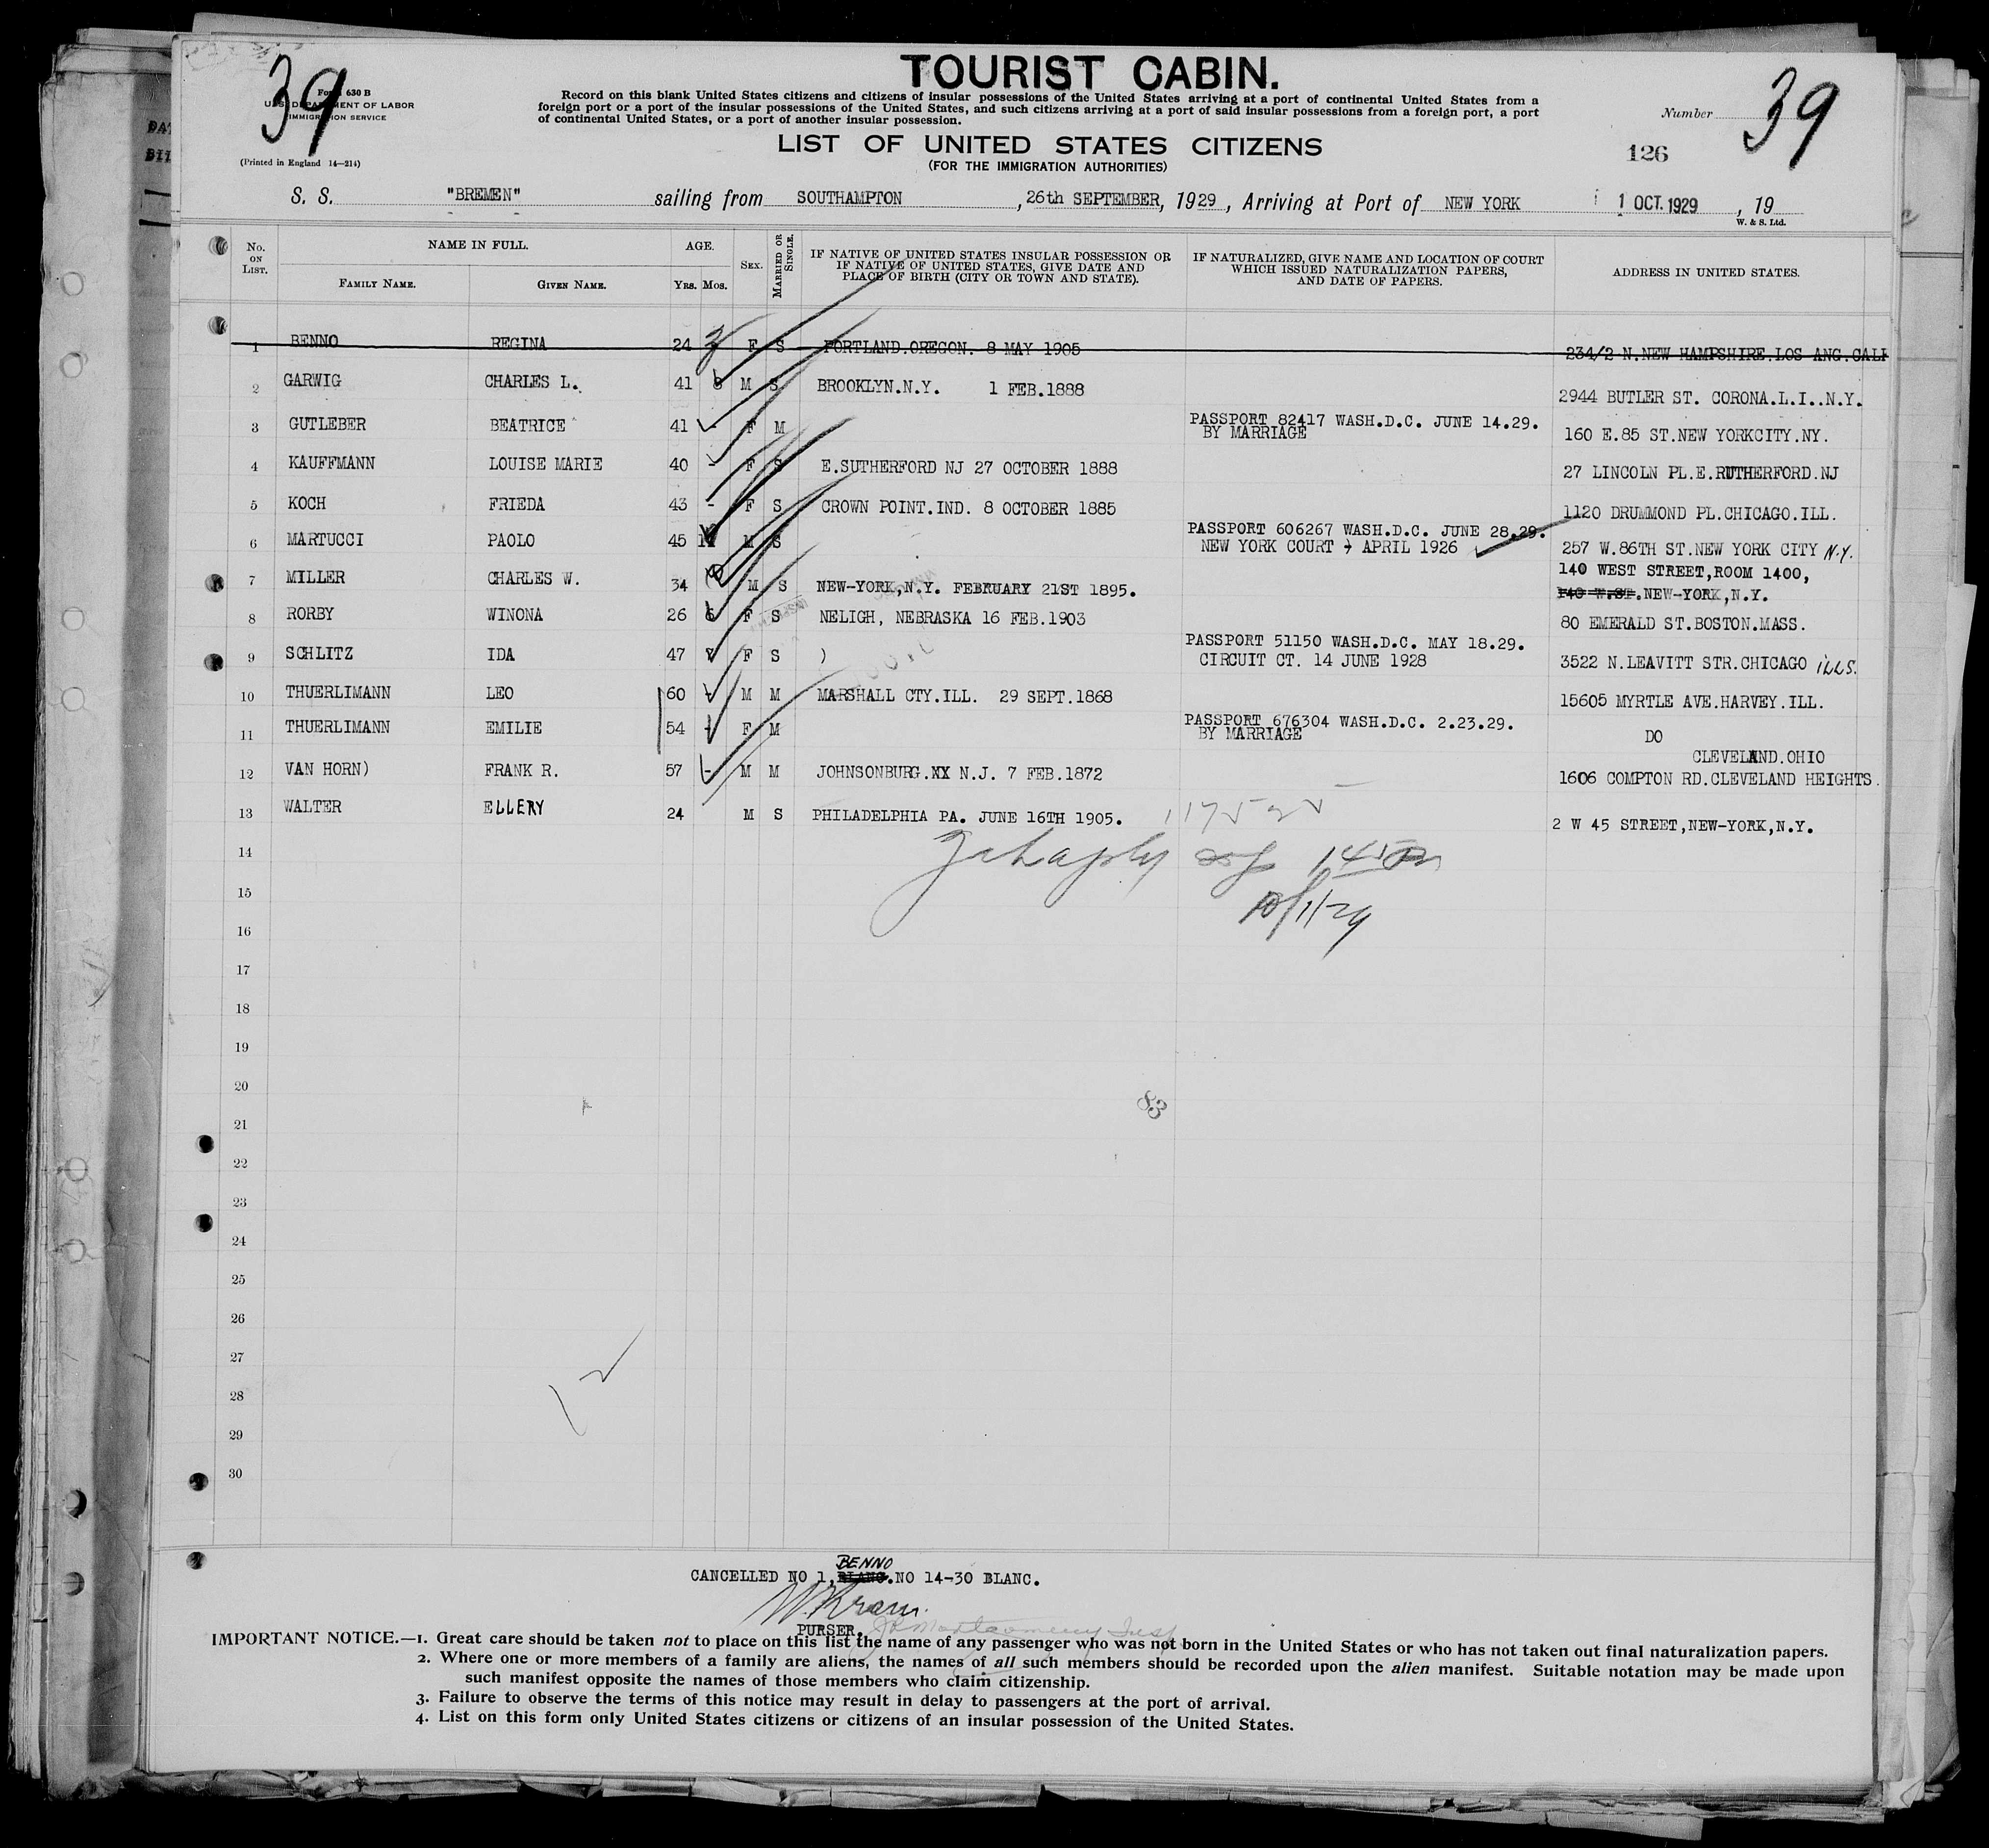 39
TOURIST CABIN.
Form 630 B
U.S. DEPARTMENT OF LABOR
IMMIGRATION SERVICE
(Printed in England 14—214)
Record on this blank United States citizens and citizens of insular possessions of the United States arriving at a port of continental United States from a
foreign port or a port of the insular possessions of the United States, and such citizens arriving at a port of said insular possessions from a foreign port, a port
of continental United States, or a port of another insular possession.
Number 39
LIST OF UNITED STATES CITIZENS
126
(FOR THE IMMIGRATION AUTHORITIES)
S. S. "BREMEN" sailing from SOUTHAMPTON, 26th SEPTEMBER, 1929, Arriving at Port of NEW YORK 1 OCT. 1929, 19
W. & S. Ltd.
No. ON LIST. NAME IN FULL. FAMILY NAME. GIVEN NAME. AGE. YRS. MOS. SEX. MARRIED OR SINGLE. IF NATIVE OF UNITED STATES INSULAR POSSESSION OR IF NATIVE OF UNITED STATES, GIVE DATE AND PLACE OF BIRTH (CITY OR TOWN AND STATE). IF NATURALIZED, GIVE NAME AND LOCATION OF COURT WHICH ISSUED NATURALIZATION PAPERS, AND DATE OF PAPERS. ADDRESS IN UNITED STATES.
1 BENNO REGINA 24 F S PORTLAND.OREGON. 8 MAY 1905 234/2 N.NEW HAMPSHIRE.LOS ANG.CALI
2 GARWIG CHARLES L. 41 8 M S BROOKLYN.N.Y. 1 FEB.1888 2944 BUTLER ST. CORONA.L.I..N.Y.
3 GUTLEBER BEATRICE 41 - F M PASSPORT 82417 WASH.D.C. JUNE 14.29. BY MARRIAGE 160 E.85 ST.NEW YORKCITY.NY.
4 KAUFFMANN LOUISE MARIE 40 - F S E.SUTHERFORD NJ 27 OCTOBER 1888 27 LINCOLN PL.E.RUTHERFORD.NJ
5 KOCH FRIEDA 43 - F S CROWN POINT.IND. 8 OCTOBER 1885 1120 DRUMMOND PL.CHICAGO.ILL.
6 MARTUCCI PAOLO 45 M S PASSPORT 606267 WASH.D.C. JUNE 28.29. NEW YORK COURT 7 APRIL 1926 257 W.86TH ST.NEW YORK CITY N.Y.
7 MILLER CHARLES W. 34 M S NEW-YORK,N.Y. FEBRUARY 21ST 1895. 140 WEST STREET,ROOM 1400, 140 W.ST.NEW-YORK,N.Y.
8 RORBY WINONA 26 6 F S NELIGH, NEBRASKA 16 FEB.1903 80 EMERALD ST.BOSTON.MASS.
9 SCHLITZ IDA 47 F S ) PASSPORT 51150 WASH.D.C. MAY 18.29. CIRCUIT CT. 14 JUNE 1928 3522 N.LEAVITT STR.CHICAGO ILLS.
10 THUERLIMANN LEO 60 - M M MARSHALL CTY.ILL. 29 SEPT.1868 15605 MYRTLE AVE.HARVEY.ILL.
11 THUERLIMANN EMILIE 54 - F M PASSPORT 676304 WASH.D.C. 2.23.29. BY MARRIAGE DO
12 VAN HORN) FRANK R. 57 - M M JOHNSONBURG.XX N.J. 7 FEB.1872 CLEVELAND.OHIO 1606 COMPTON RD.CLEVELAND HEIGHTS.
13 WALTER ELLERY 24 M S PHILADELPHIA PA. JUNE 16TH 1905. 2 W 45 STREET,NEW-YORK,N.Y.
14
10/1/29
15
16
17
18
19
20
21
83
22
23
24
25
26
27
12
28
29
30
BENNO
CANCELLED NO 1, BLANC.NO 14-30 BLANC.
PURSER.
IMPORTANT NOTICE.—1. Great care should be taken not to place on this list the name of any passenger who was not born in the United States or who has not taken out final naturalization papers.
2. Where one or more members of a family are aliens, the names of all such members should be recorded upon the alien manifest. Suitable notation may be made upon
such manifest opposite the names of those members who claim citizenship.
3. Failure to observe the terms of this notice may result in delay to passengers at the port of arrival.
4. List on this form only United States citizens or citizens of an insular possession of the United States.